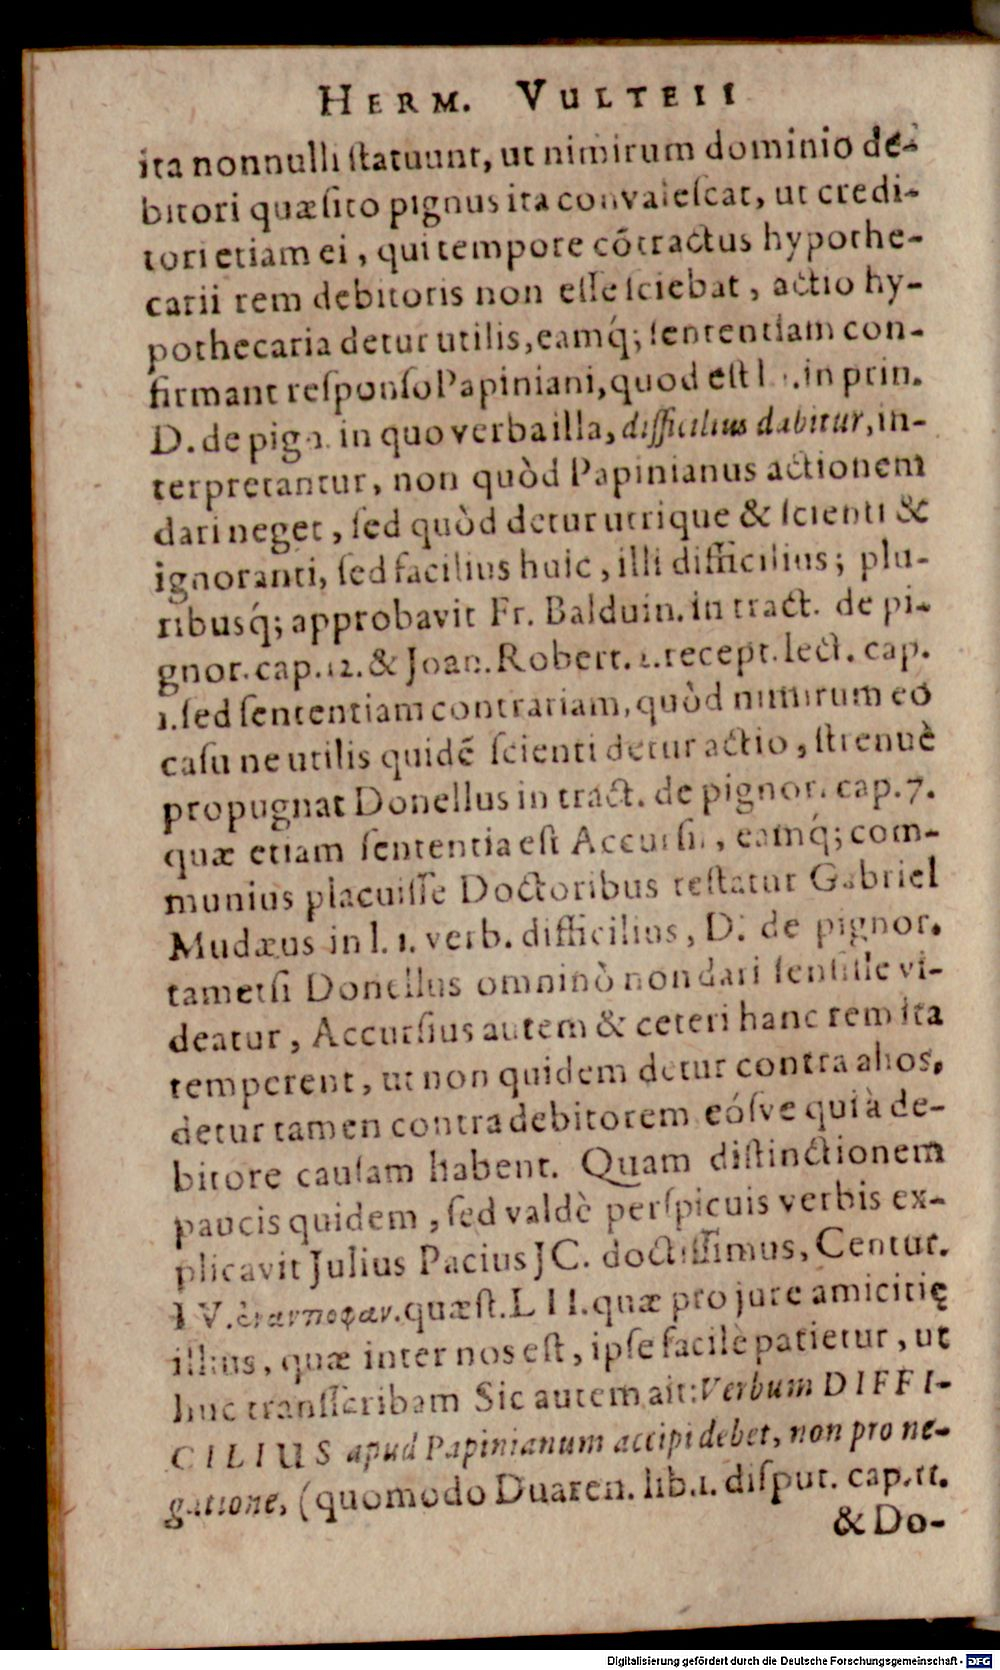 HERM. VULTEII
ita nonnulli ſtatuunt, ut nimirum dominio de-
bitori quæſito pignus ita convaleſcat, ut credi-
tori etiam ei, qui tempore cõtractus hypothe-
carii rem debitoris non eſſe ſciebat, actio hy-
pothecaria detur utilis, eamq́; ſententiam con-
firmant reſponſo Papiniani, quod eſt l . in prin.
D. de pign. in quo verba illa, difficilius dabitur, in-
terpretantur, non quòd Papinianus actionem
dari neget, ſed quòd detur utrique & ſcienti &
ignoranti, ſed facilius huic, illi difficilius; plu-
ribusq́; approbavit Fr. Balduin. in tract. de pi-
gnor. cap. 12. & Joan. Robert. 1. recept. lect. cap.
1. ſed ſententiam contrariam, quòd nimirum eo
caſu ne utilis quidẽ ſcienti detur actio, ſtrenuè
propugnat Donellus in tract. de pignor. cap. 7.
quæ etiam ſententia eſt Accurſii, eamq́; com-
munius placuiſſe Doctoribus teſtatur Gabriel
Mudæus in l. 1. verb. difficilius, D. de pignor.
tametſi Donellus omninò non dari ſenſiſſe vi-
deatur, Accurſius autem & ceteri hanc rem ita
temperent, ut non quidem detur contra alios,
detur tamen contra debitorem eóſve qui à de-
bitore cauſam habent. Quam diſtinctionem
paucis quidem, ſed valdè perſpicuis verbis ex-
plicavit Julius Pacius JC. doctiſſimus, Centur.
IV. quæſt. LII. quæ pro jure amicitię
illius, quæ inter nos eſt, ipſe facilè patietur, ut
huc tranſſcribam Sic autem ait: Verbum DIFFI-
CILIUS apud Papinianum accipi debet, non pro ne-
gatione, (quomodo Duaren. lib. 1. diſput. cap. 11.
& Do-
Digitalisierung gefördert durch die Deutsche Forschungsgemeinschaft - DFG